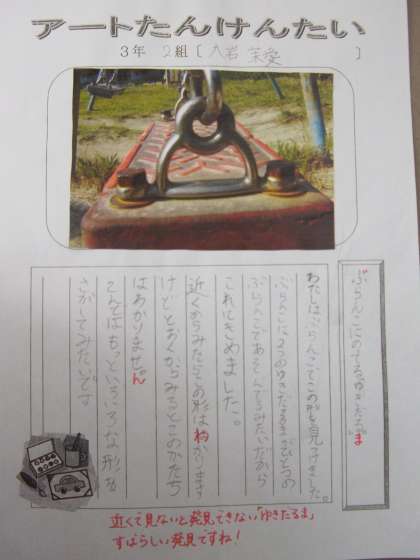 アートたんけんたい
3年 2組〔
〕
ぶらんこにのてるゆきだるま
わたしはぶらんこでこの形を見つけました。
ぶらんこは2つのゆきだるまがひとつの
ぶらんこであそんでるみたいだから
これにきめました。
近くからみたらこの形は わかります
けどとおくからみるとこのかたち
はわかりません
こんどはもっといろいろな形を
さがしてみたいです
近くで見ないと発見できない「ゆきだるま」
すばらしい発見ですね！